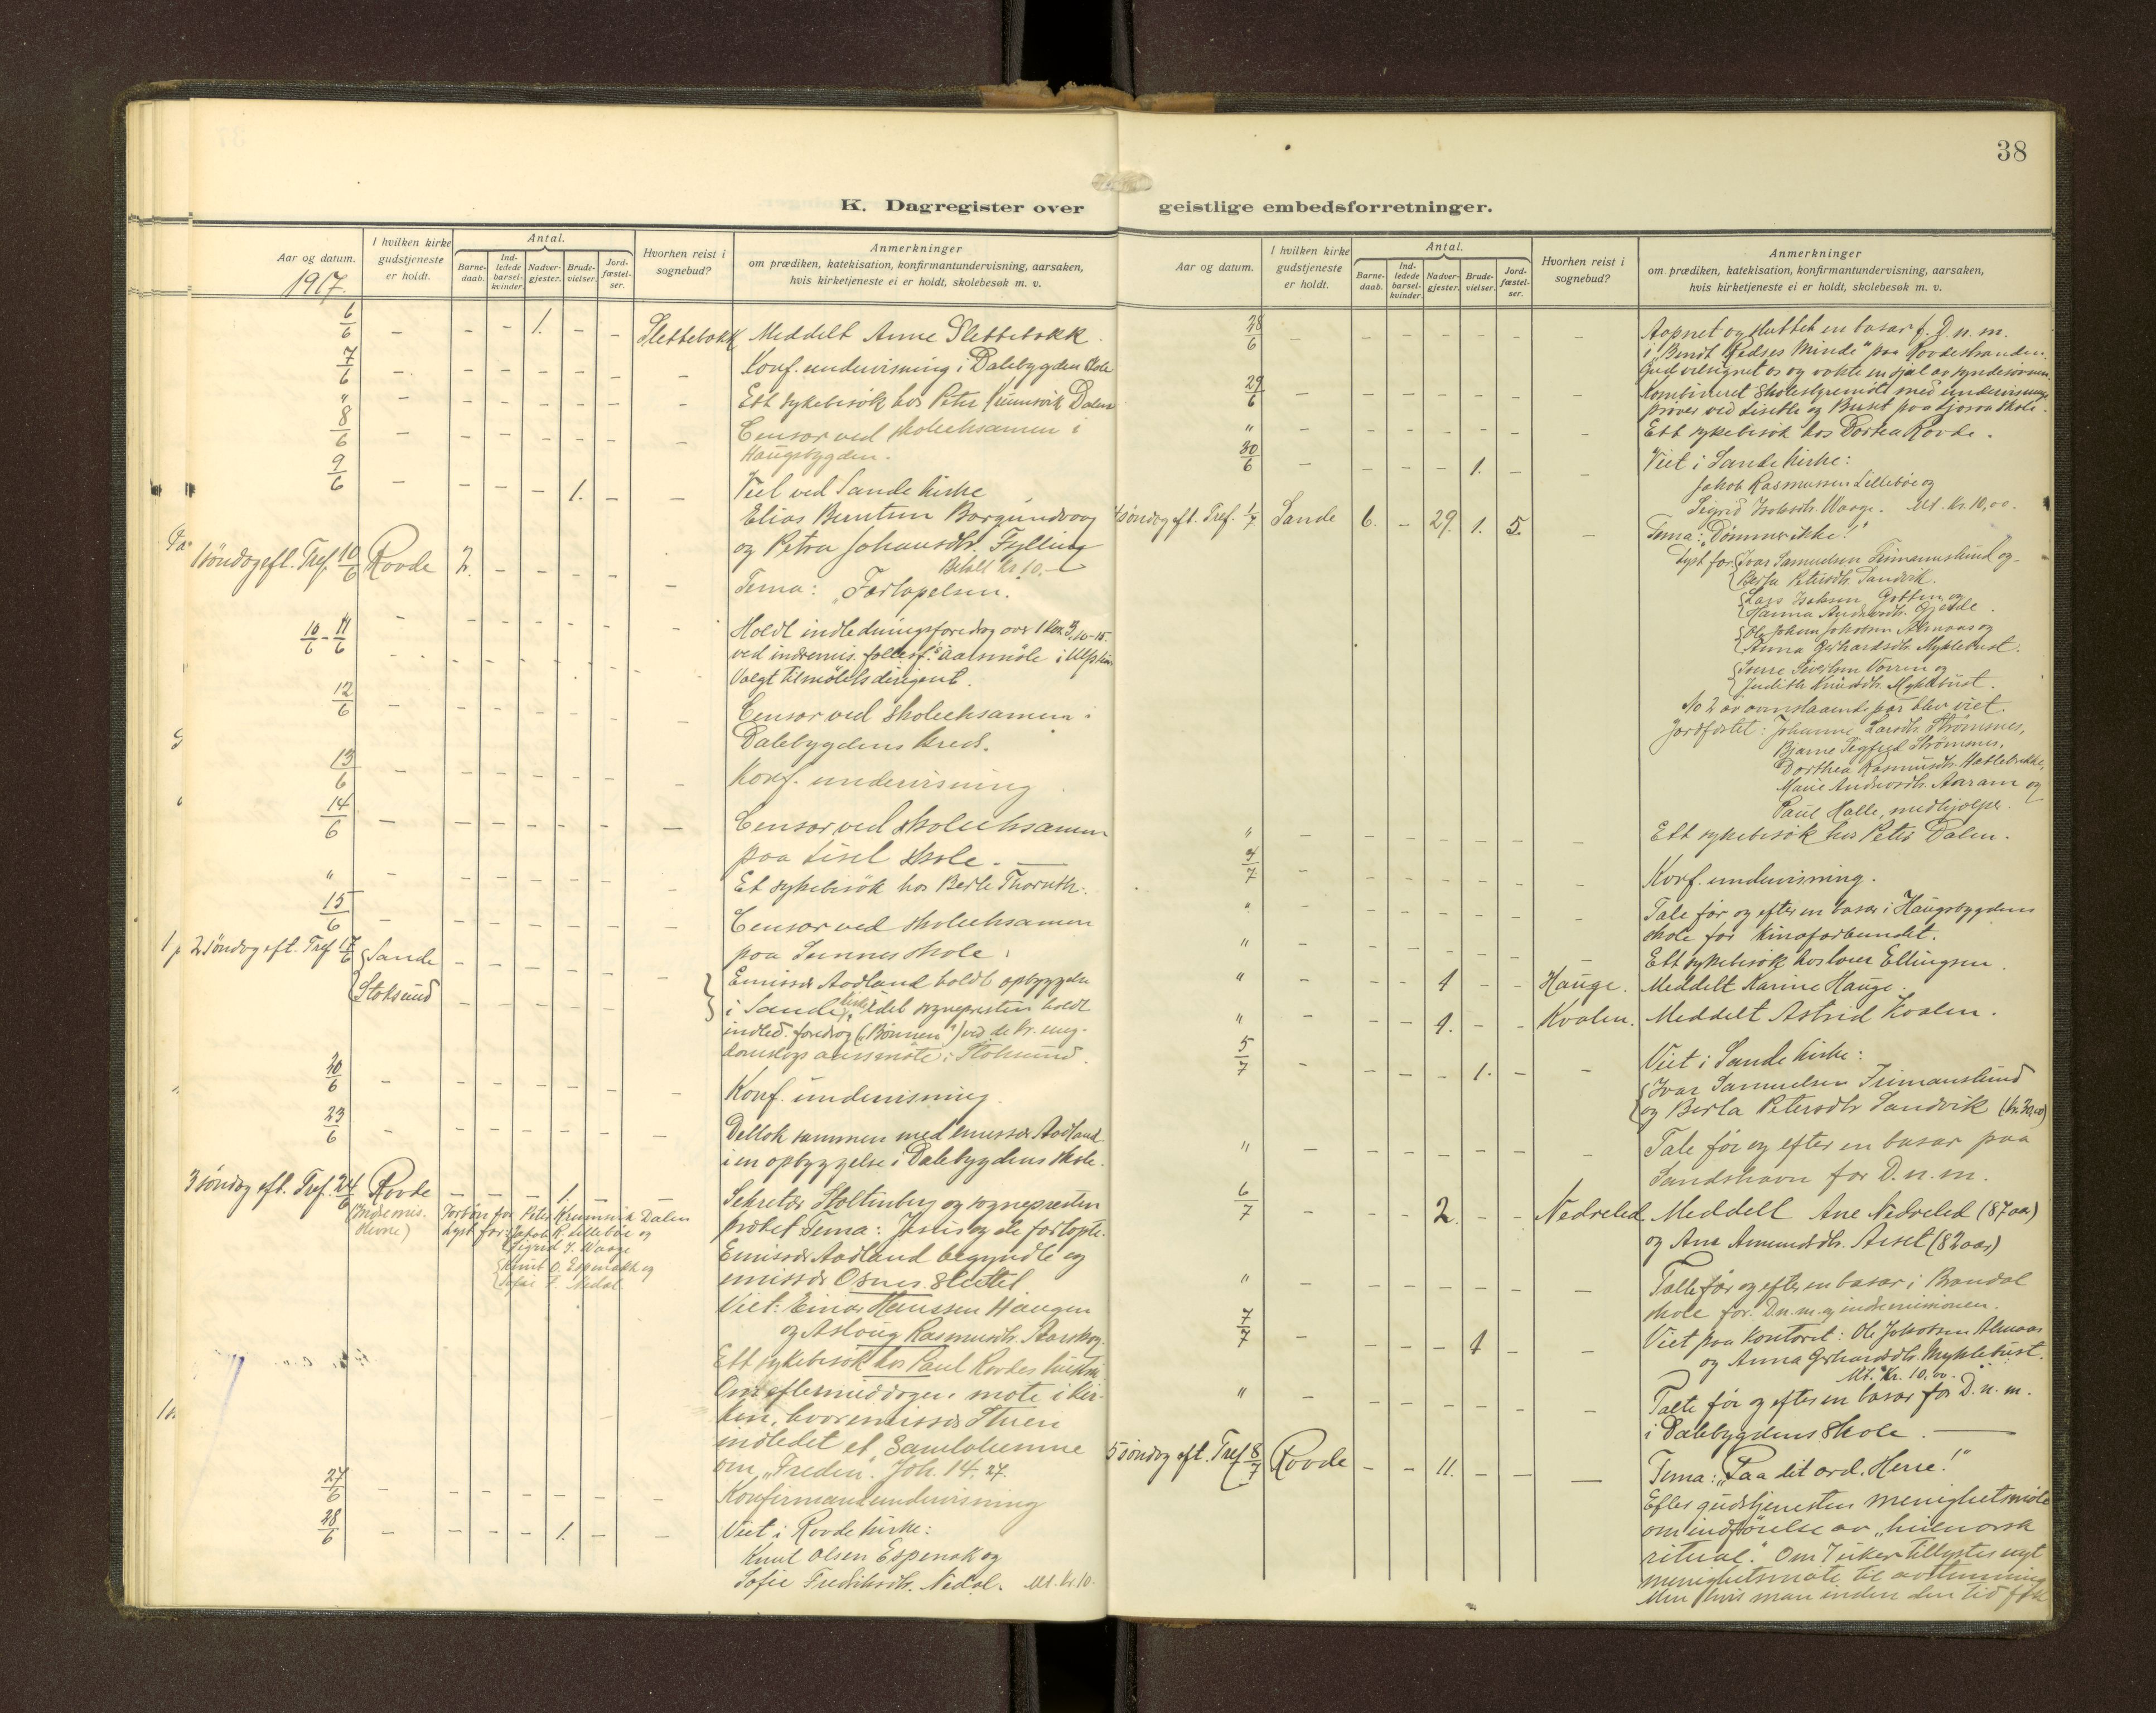 38
K. Dagregister over geistlige embedsforretninger.
Aar og datum.
1917.
I hvilken kirke gudstjeneste er holdt.
Antal.
Barne-daab.
Ind-ledede barsel-kvinder.
Nadver-gjester.
Brude-vielser.
Jord-fæstel-ser.
Hvorhen reist i sognebud?
Anmerkninger
om prædiken, katekisation, konfirmantundervisning, aarsaken,
hvis kirketjeneste ei er holdt, skolebesøk m. v.
6/6 – – – 1. – – Slettebakk Meddelt Anne Slettebakk.
7/6 – – – – – – – Konf. undervisning i Dalebygden skole
" – – – – – – – Ett sykebesøk hos Peter Krumsvik Dalen
8/6 – – – – – – – Censor ved skoleeksamen i
Haugsbygden.
9/6 – – – – 1. – – Viet ved Sande kirke
Elias Berntsen Borgundvaag
og Petra Johansdtr. Fylling
Betalt kr 10.–
1 søndag eft. Tref. 10/6 Rovde 2. – – – – – Tema: Fortapelsen.
10/6 - 11/6 – – – – – – – Holdt indledningsforedrag over 1 Kor. 3, 10-15.
ved indremis. fællesf.'s aarsmøte i
Valgt til møtets dirigent.
12/6 – – – – – – – Censor ved skoleeksamen i
Dalebygdens kreds.
13/6 – – – – – – – Konf. undervisning
14/6 – – – – – – – Censor ved skoleeksamen
paa Liset skole. –
" – – – – – – – Et sykebesøk hos Berte Thorseth.
15/6 – – – – – – – Censor ved skoleeksamen
paa Sunnes skole.
2 søndag eft. Tref. 17/6 Sande – – – – – – Emissær Aadland holdt opbyggelse
Stoksund – – – – – – i Sande kirke, idet sognepresten holdt
indled. foredrag ("Bønnen") ved de kr. ung-
domslags aarsmøte i Stoksund.
20/6 – – – – – – – Konf. undervisning.
23/6 – – – – – – – Deltok sammen med emissær Aadland
i en opbyggelse i Dalebygdens skole.
3 søndag eft. Tref. 24/6 Rovde – – – 1. – – Sekretær Stoltenberg og sognepresten
(Indremis. stevne) Forbøn for Peter Krumsvik Dalen
Lyst for: Jakob R. Lillebøe og
Sigrid I. Waage
Knut O. Espenakk og
Sofie F. Nedal
præket Tema: Jesus og de fortapte.
Emissær Aadland begyndte og
emissær Osnes sluttet
Viet: Einar Hanssen Haugen
og Aslaug Rasmusdtr. Aarskog.
Ett sykebesøk hos Paul Rovdes hustru
Om eftermiddagen møte i kir-
ken, hvor emissær Stuen
indledet et samtaleemne
om "Freden". Joh. 14, 27.
27/6 – – – – – – – Konfirmantundervisning
28/6 – – – – 1. – – Viet i Rovde kirke:
Knut Olsen Espenak og
Sofie Fredriksdtr. Nedal. Mt. Kr. 10.
Aar og datum.
I hvilken kirke gudstjeneste er holdt.
Antal.
Barne-daab.
Ind-ledede barsel-kvinder.
Nadver-gjester.
Brude-vielser.
Jord-fæstel-ser.
Hvorhen reist i sognebud?
Anmerkninger
om prædiken, katekisation, konfirmantundervisning, aarsaken,
hvis kirketjeneste ei er holdt, skolebesøk m. v.
28/6 – – – – – – – Aapnet og sluttet en basar f. D. n. m.
i "Bendt Rødses Minde" paa Rovdestranden.
Gud velsignet os og vakte en sjæl av syndesøvnen.
29/6 – – – – – – – Kombineret skolestyremøte med undervisnings-
prøver ved Liseth og Buset paa Gjosaa skole.
" – – – – – – – Ett sykebesøk hos Dortea Rovde.
30/6 – – – – 1. – – Viet i Sande kirke:
Jakob Rasmussen Lillebøe og
Sigrid Isaksdtr. Waage. Mt. Kr. 10,00.
4 søndag eft. Tref. 1/7 Sande 6. – 29. 1. 5. – Tema: "Dømmer ikke!"
Lyst for Ivar Samuelsen Furmanslund og
Berta Petersdtr. Sandvik.
Lars Isaksen Gotten og
Hanna Andersdtr. Gjerde.
Ole Johan Jakobsen Almaas og
Anna Gerhardsdtr. Myklebust.
Sivertsen og
Judith Knutsdtr. Myklebust.
No 2 av ovenstaaende par blev viet.
Jordfæstet: Johanne Larsdtr. Strømsnes,
Bjarne Sigfred Strømsnes,
Dorthea Rasmusdtr. Hatlebrekke,
Marie Andersdtr. Aaram og
Paul Halle, medhjælper.
" – – – – – – – Ett sykebesøk hos Peter Dalen.
4/7 – – – – – – – Konf. undervisning.
" – – – – – – – Tale før og efter en basar i Haugsbygdens
skole for kinaforbundet.
" – – – – – – – Ett sykebesøk hos lærer Ellingsen.
" – – – 1 – – Hauge. Meddelt Karine Hauge.
" – – – 1. – – Kvalen. Meddelt Astrid Kvalen.
5/7 – – – – 1. – – Viet i Sande kirke:
Ivar Samuelsen Furmanslund
og Berta Petersdtr Sandvik (kr. 20,00)
" – – – – – – – Tale før og efter en basar paa
Sandshavn for D. n. m.
6/7 – – – 2. – – Nedreled. Meddelt Ane Nedreled (87 aar)
og Ane Amundsdtr. Aeset (82 aar)
" – – – – – – – Talte før og efter en basar i Brandal
skole for D. n. m. og indremissionen.
7/7 – – – – 1 – – Viet paa kontoret: Ole Jakobsen Almaas
og Anna Gerhardsdtr. Myklebust.
Mt. Kr. 10,00.
" – – – – – – – Talte før og efter en basar for D. n. m.
i Dalebygdens skole. –
5 søndag eft. Tref. 8/7 Rovde – – 11. – – – Tema: "Paa dit ord, Herre!"
Efter gudstjenesten menighetsmøte
om indførelse av "helnorsk
ritual". Om 7 uker tillystes nyt
menighetsmøte til avstemming
Men hvis man inden den tid fik